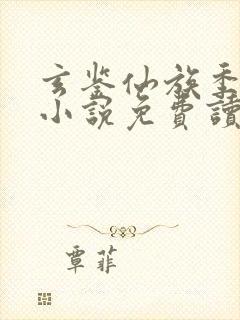 玄鉴仙族季
小說免費讀
覃菲